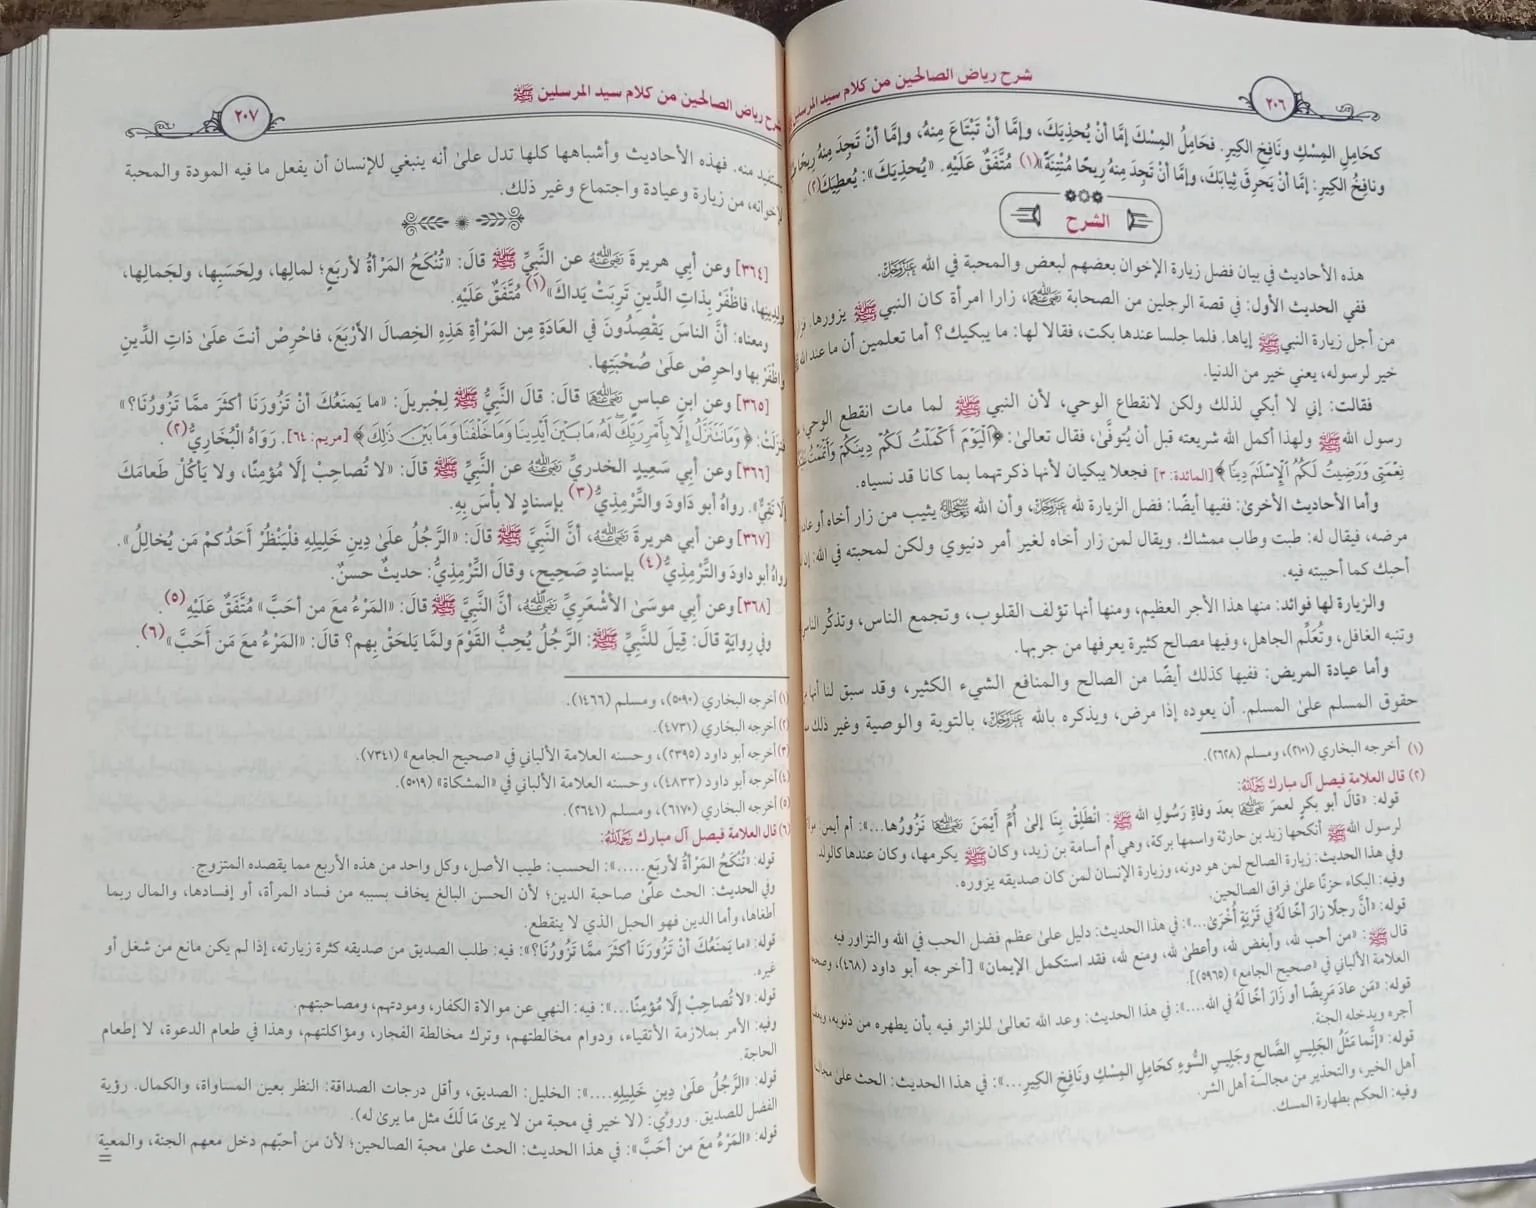 شرح رياض الصالحين من كلام سيد المرسلين
٢٠٦
كحَامِلِ المِسْكِ ونَافِخِ الكِيرِ. فَحَامِلُ المِسْكَ إمَّا أنْ يُحْذِيَكَ، وإمَّا أنْ تَبْتَاعَ مِنهُ، وإمَّا أنْ تَجِدَ مِنهُ رِيحًا
ونافِخُ الكِيرِ: إمَّا أنْ يَحرِقَ ثِيابَكَ، وإمَّا أنْ تَجِدَ مِنهُ رِيحًا مُنْتِنَةً»(١) مُتَّفَقٌ عَلَيْهِ. «يُحْذِيَكَ»: يُعطِيَكَ(٢)
الشرح
هذه الأحاديث في بيان فضل زيارة الإخوان بعضهم لبعض والمحبة في الله عَزَّوَجَلَّ.
ففي الحديث الأول: في قصة الرجلين من الصحابة رضي الله عنهما، زارا امرأة كان النبي ﷺ يزورها،
من أجل زيارة النبي ﷺ إياها. فلما جلسا عندها بكت، فقالا لها: ما يبكيك؟ أما تعلمين أن ما عند الله
خير لرسوله، يعني خير من الدنيا.
فقالت: إني لا أبكي لذلك ولكن لانقطاع الوحي، لأن النبي ﷺ لما مات انقطع الوحي،
رسول الله ﷺ ولهذا أكمل الله شريعته قبل أن يُتوفَّى، فقال تعالى: ﴿ٱلْيَوْمَ أَكْمَلْتُ لَكُمْ دِينَكُمْ وَأَتْمَمْتُ
نِعْمَتِي وَرَضِيتُ لَكُمُ ٱلْإِسْلَـٰمَ دِينًا﴾ [المائدة: ٣] فجعلا يبكيان لأنها ذكرتهما بما كانا قد نسياه.
وأما الأحاديث الأخرى: ففيها أيضًا: فضل الزيارة لله عَزَّوَجَلَّ، وأن الله يثيب من زار أخاه أو عاده
مرضه، فيقال له: طبت وطاب ممشاك. ويقال لمن زار أخاه لغير أمر دنيوي ولكن لمحبته في الله:
أحبك كما أحببته فيه.
والزيارة لها فوائد: منها هذا الأجر العظيم، ومنها أنها تؤلف القلوب، وتجمع الناس، وتذكِّر
وتنبه الغافل، وتُعَلِّم الجاهل، وفيها مصالح كثيرة يعرفها من جربها.
وأما عيادة المريض: ففيها كذلك أيضًا من الصالح والمنافع الشيء الكثير، وقد سبق لنا
حقوق المسلم على المسلم. أن يعوده إذا مرض، ويذكره بالله عَزَّوَجَلَّ، بالتوبة والوصية وغير ذلك
(١) أخرجه البخاري (٢١٠١)، ومسلم (٢٦٢٨).
(٢) قال العلامة فيصل آل مبارك رَحِمَهُ اللَّهُ:
قوله: «قالَ أبو بكرٍ لعمرَ رضي الله عنهما بعدَ وفاةِ رَسُولِ الله ﷺ: انْطَلِقْ بِنَا إلى أُمِّ أَيْمَنَ رضي الله عنها نَزُورُها...»: أم أيمن:
لرسول الله ﷺ أنكحها زيد بن حارثة واسمها بركة، وهي أم أسامة بن زيد، وكان ﷺ يكرمها، وكان عندها كالولد.
وفي هذا الحديث: زيارة الصالح لمن هو دونه، وزيارة الإنسان لمن كان صديقه يزوره.
وفيه: البكاء حزنًا على فراق الصالحين.
قوله: «أنَّ رجلًا زارَ أخًا لَهُ في قَرْيَةٍ أُخْرَى...»: في هذا الحديث: دليل على عظم فضل الحب في الله والتزاور فيه
قال ﷺ: «من أحب لله، وأبغض لله، وأعطى لله، ومنع لله، فقد استكمل الإيمان» [أخرجه أبو داود (٤٦٨)،
العلامة الألباني في «صحيح الجامع» (٥٩٦٥)].
قوله: «مَن عادَ مَرِيضًا أو زَارَ أخًا لَهُ في الله....»: في هذا الحديث: وعد الله تعالى للزائر فيه بأن يطهره من ذنوبه،
أجره ويدخله الجنة.
قوله: «إنَّما مَثَلُ الجَلِيسِ الصَّالِحِ وجَلِيسِ السُّوءِ كحَامِلِ المِسْكِ ونَافِخِ الكِيرِ...»: في هذا الحديث: الحث على
أهل الخير، والتحذير من مجالسة أهل الشر.
وفيه: الحكم بطهارة المسك.
شرح رياض الصالحين من كلام سيد المرسلين ﷺ
٢٠٧
منه. فهذه الأحاديث وأشباهها كلها تدل على أنه ينبغي للإنسان أن يفعل ما فيه المودة والمحبة
لإخوانه، من زيارة وعيادة واجتماع وغير ذلك.
[٣٦٤] وعن أبِي هريرةَ رضي الله عنه عن النَّبِيِّ ﷺ قالَ: «تُنْكَحُ المَرْأةُ لأربَعٍ؛ لمالِها، ولِحَسَبِها، ولجَمالِها،
ولِدِينِها، فاظْفَرْ بِذاتِ الدِّينِ تَرِبَتْ يَداكَ»(١) مُتَّفَقٌ عَلَيْهِ.
ومعناه: أنَّ الناسَ يَقْصِدُونَ في العَادَةِ مِن المَرْأةِ هَذِهِ الخِصالَ الأَرْبَعَ، فاحْرِصْ أنتَ علىٰ ذاتِ الدِّينِ
واظْفَرْ بها واحرِصْ علىٰ صُحْبَتِها.
[٣٦٥] وعن ابنِ عباسٍ رضي الله عنهما قالَ: قالَ النَّبِيُّ ﷺ لِجْبريلَ: «ما يَمنَعُكَ أنْ تَزُورَنَا أكثَرَ ممَّا تَزُورُنَا؟»
فنزلَتْ: ﴿وَمَا نَتَنَزَّلُ إِلَّا بِأَمْرِ رَبِّكَ لَهُۥ مَا بَيْنَ أَيْدِينَا وَمَا خَلْفَنَا وَمَا بَيْنَ ذَٰلِكَ﴾ [مريم: ٦٤]. رَوَاهُ الْبُخَارِيُّ(٢).
[٣٦٦] وعن أبي سَعِيدٍ الخدريِّ رضي الله عنه عن النَّبِيِّ ﷺ قالَ: «لا تُصَاحِبْ إلَّا مُؤمِنًا، ولا يَأكُلْ طَعامَكَ
إلَّا تَقِيٌّ». رواهُ أبو دَاودَ والتِّرْمِذِيُّ(٣) بإسنادٍ لا بأْسَ بِهِ.
[٣٦٧] وعن أبي هريرةَ رضي الله عنه، أنَّ النَّبِيَّ ﷺ قالَ: «الرَّجُلُ علىٰ دِينِ خَلِيلِهِ فَلْيَنْظُرْ أَحَدُكمْ مَن يُخالِلُ».
رواهُ أبو داودَ والتِّرْمِذِيُّ(٤) بإسنادٍ صَحِيحٍ، وقالَ التِّرْمِذِيُّ: حديثٌ حسنٌ.
[٣٦٨] وعن أبي موسَىٰ الأَشْعَرِيِّ رضي الله عنه، أنَّ النَّبِيَّ ﷺ قالَ: «المَرْءُ معَ من أحَبَّ» مُتَّفَقٌ عَلَيْهِ(٥).
وفي رِوايَةٍ قالَ: قِيلَ للنَّبِيِّ ﷺ: الرَّجُلُ يُحِبُّ القَوْمَ ولمَّا يَلحَقْ بِهِم؟ قالَ: «المَرْءُ معَ مَن أَحَبَّ»(٦).
(١) أخرجه البخاري (٥٠٩٠)، ومسلم (١٤٦٦).
(٢) أخرجه البخاري (٤٧٣١).
(٣) أخرجه أبو داود (٢٣٩٥)، وحسنه العلامة الألباني في «صحيح الجامع» (٧٣٤١).
(٤) أخرجه أبو داود (٤٨٣٣)، وحسنه العلامة الألباني في «المشكاة» (٥٠١٩).
(٥) أخرجه البخاري (٦١٧٠)، ومسلم (٢٦٤١).
(٦) قال العلامة فيصل آل مبارك رَحِمَهُ اللَّهُ:
قوله: «تُنْكَحُ المَرْأةُ لأربَعٍ.....»: الحسب: طيب الأصل، وكل واحد من هذه الأربع مما يقصده المتزوج.
وفي الحديث: الحث على صاحبة الدين؛ لأن الحسن البالغ يخاف بسببه من فساد المرأة، أو إفسادها، والمال ربما
أطغاها، وأما الدين فهو الحبل الذي لا ينقطع.
قوله: «ما يَمنَعُكَ أنْ تَزُورَنَا أكثَرَ ممَّا تَزُورُنَا؟»: فيه: طلب الصديق من صديقه كثرة زيارته، إذا لم يكن مانع من شغل أو
غيره.
قوله: «لا تُصَاحِبْ إلَّا مُؤمِنًا...»: فيه: النهي عن موالاة الكفار، ومودتهم، ومصاحبتهم.
وفيه: الأمر بملازمة الأتقياء، ودوام مخالطتهم، وترك مخالطة الفجار، ومؤاكلتهم، وهذا في طعام الدعوة، لا إطعام
الحاجة.
قوله: «الرَّجُلُ علىٰ دِينِ خَلِيلِهِ....»: الخليل: الصديق، وأقل درجات الصداقة: النظر بعين المساواة، والكمال. رؤية
الفضل للصديق. ورُوِيَ: (لا خير في محبة من لا يرىٰ مَا لَكَ مثل ما يرىٰ له).
قوله: «المَرْءُ معَ من أحَبَّ»: في هذا الحديث: الحث علىٰ محبة الصالحين؛ لأن من أحبّهم دخل معهم الجنة، والمعية
=